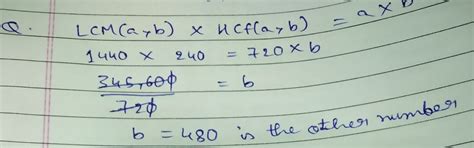 Q. LCM(a,b) × HCF(a,b) = a × b
1440 × 240 = 720 × b
345,600 = b
720
b = 480 is the other number